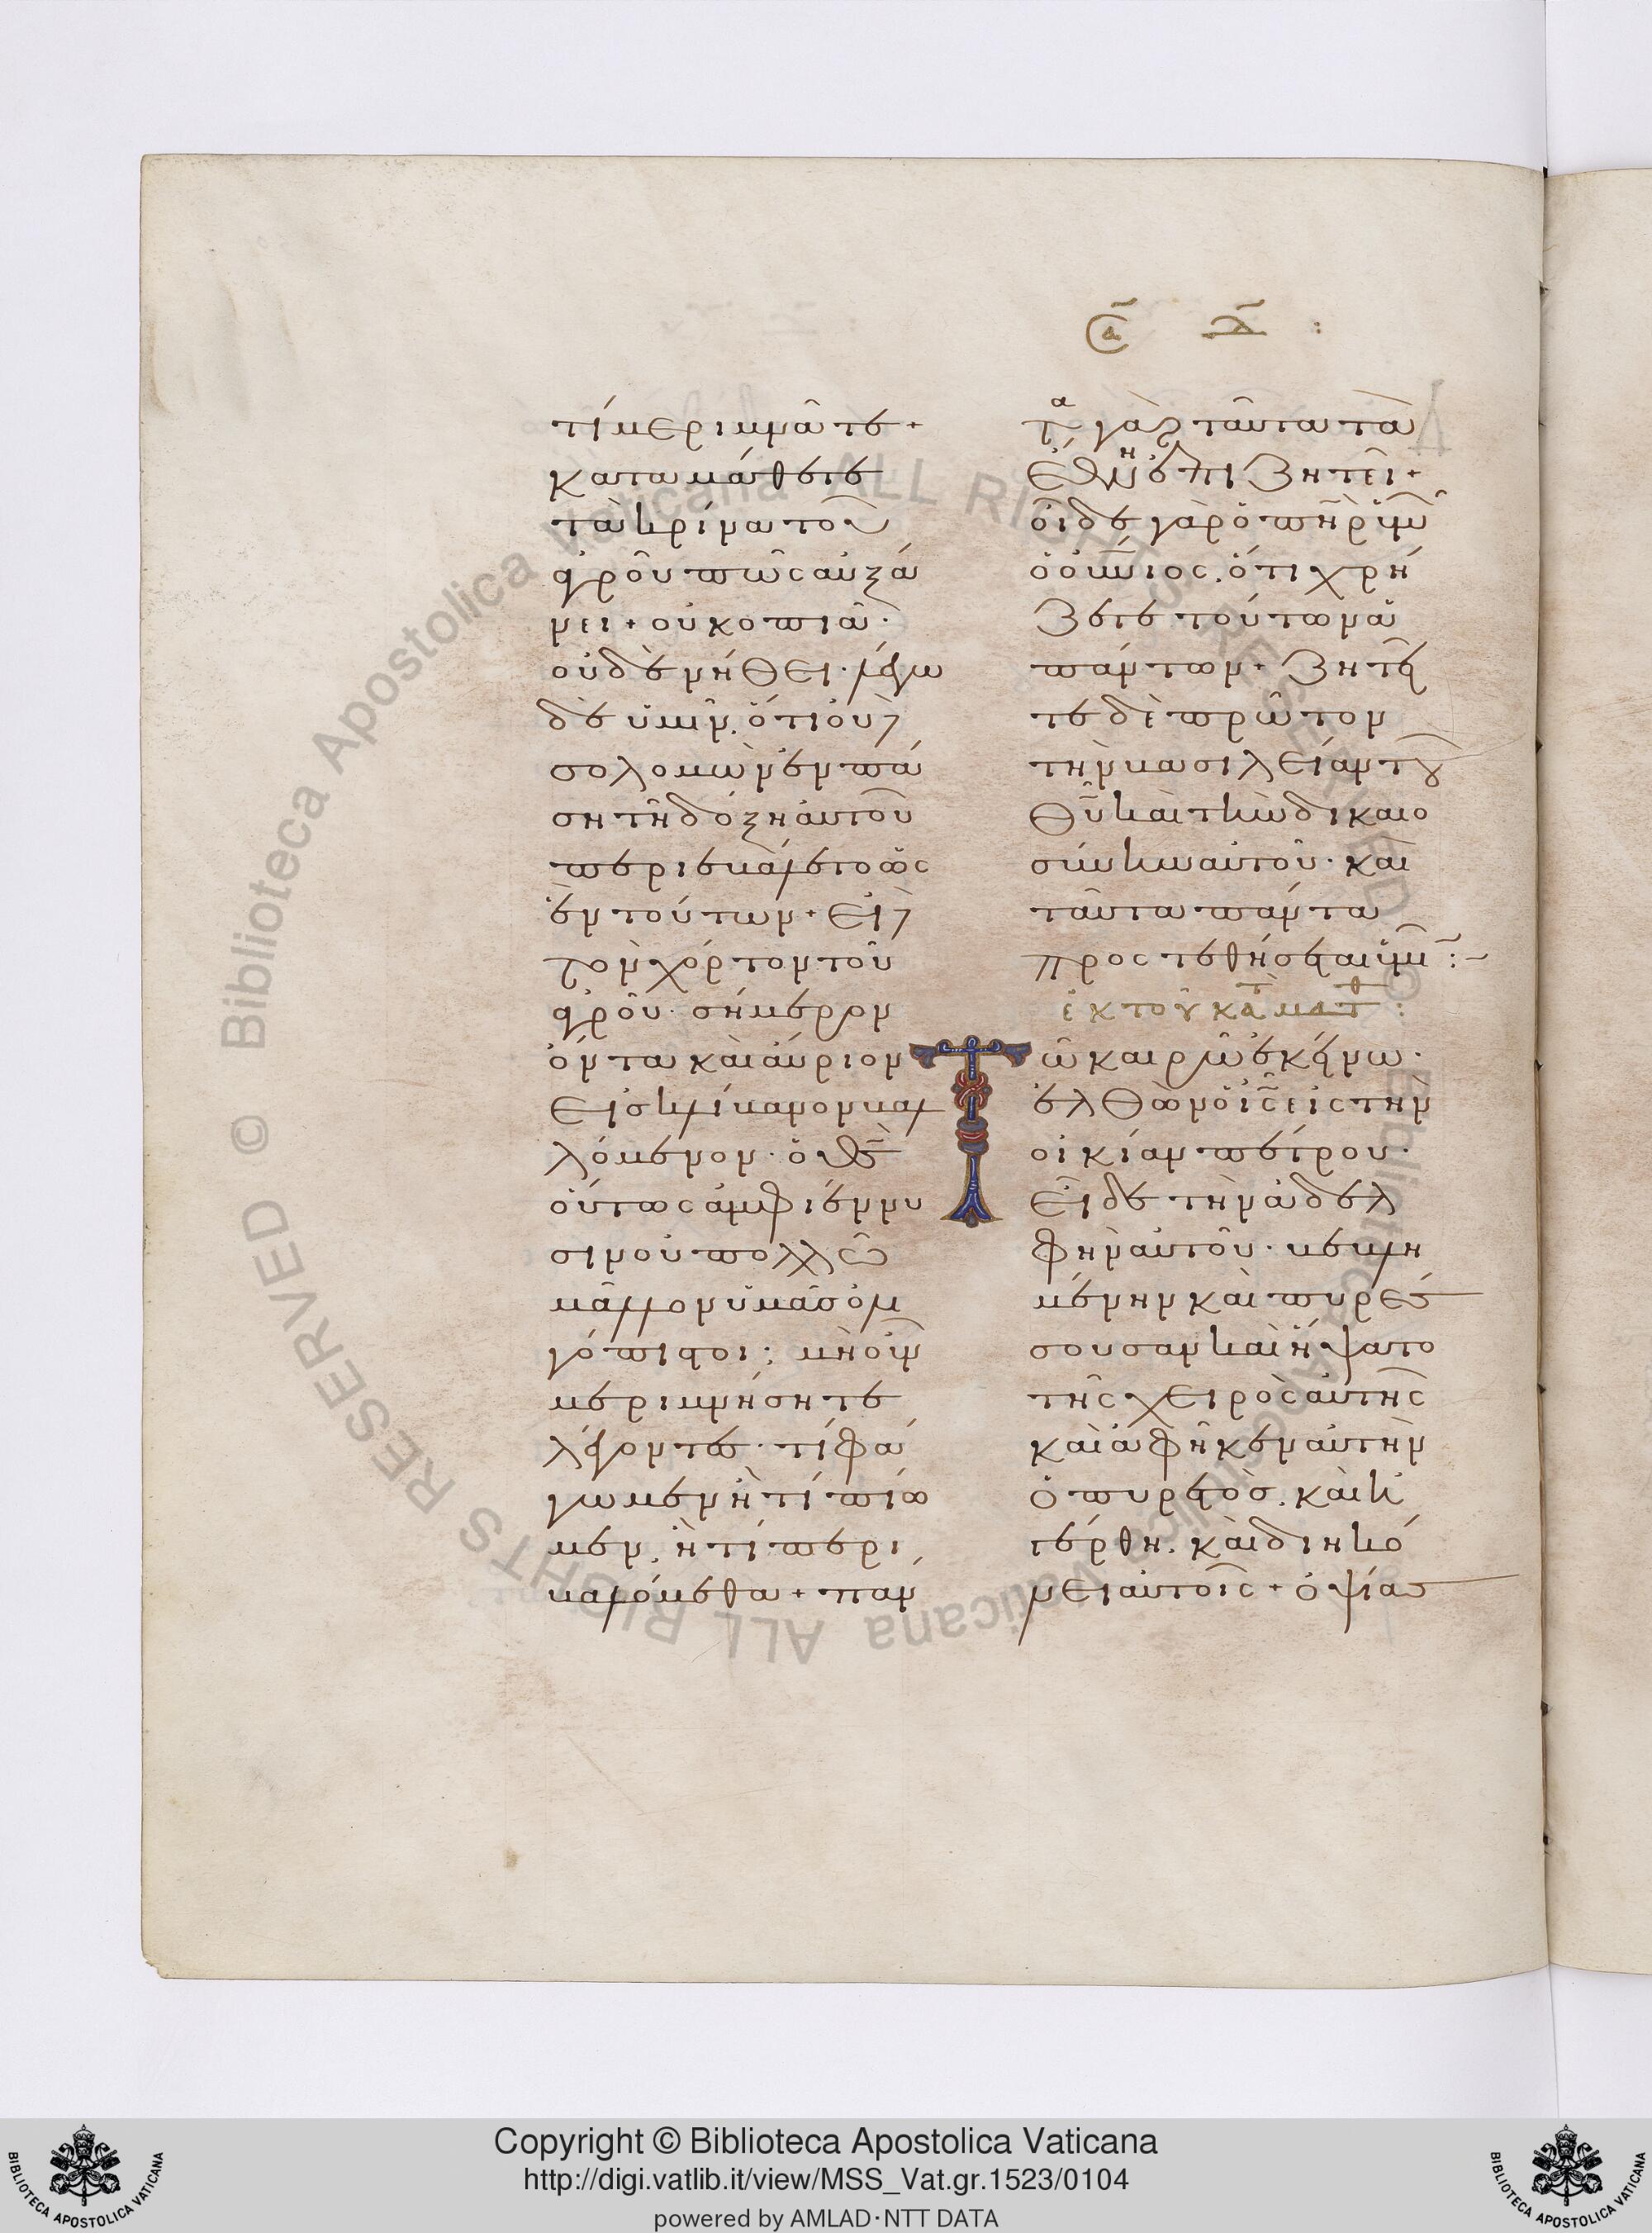 τί μεριμνᾶτε +
καταμάθετε
τὰ κρίνα τοῦ
ἀγροῦ πῶς αὐξά
νει + οὐ κοπιᾶ ·
οὐδὲ νήθει · λέγω
δὲ ὑμῖν. ὅτι οὐ
σολομὼν ἐν πά
ση τῆ δόξη αὐτοῦ
περιεβάλετο ὡς
ἓν τούτων + εἰ
τὸν χόρτον τοῦ
ἀγροῦ · σήμερον
ὄντα καὶ αὔριον
εἰς κλίβανον βαλ
λόμενον · ὁ θς
οὕτως ἀμφιέννυ
σιν οὐ πολλῶ
μᾶλλον ὑμᾶς ὀλι
γόπιστοι ; μὴ οὖν
μεριμνήσητε
λέγοντες · τί φά
γωμεν ἢ τί πίω
μεν. ἢ τί περι
βαλόμεθα + πάν
τα γὰρ ταῦτα τὰ
ἔθνη ἐπιζητεῖ +
οἶδε γὰρ ὁ πηρ ὑμῶν
ὁ οὐνιος. ὅτι χρή
ζετε τούτων ἁ
πάντων + ζητεῖ
τε δὲ πρῶτον
τὴν βασιλείαν τοῦ
θυ καὶ τὴν δικαιο
σύνην αὐτοῦ · καὶ
ταῦτα πάντα
προστεθήσεται ὑμῖν :~
ἐκ τοῦ κατὰ ματθ :
Τῶ καιρῶ ἐκείνω ·
ἐλθὼν ὁ ις εἰς τὴν
οἰκίαν πέτρου ·
εἶδε τὴν
φὴν αὐτοῦ · βεβλη
μένην καὶ πυρέσ
σουσαν καὶ ἥψατο
τῆς χειρὸς αὐτῆς
καὶ ἀφῆκεν αὐτὴν
ὁ πυρετὸς. καὶ ἠ
γέρθη. καὶ διηκό
νει αὐτοῖς + ὀψίας
Copyright © Biblioteca Apostolica Vaticana
http://digi.vatlib.it/view/MSS_Vat.gr.1523/0104
powered by AMLAD·NTT DATA
BIBLIOTECA APOSTOLICA VATICANA
BIBLIOTECA APOSTOLICA VATICANA
© Biblioteca Apostolica Vaticana ALL RIGHTS RESERVED
© Biblioteca Apostolica Vaticana ALL RIGHTS RESERVED